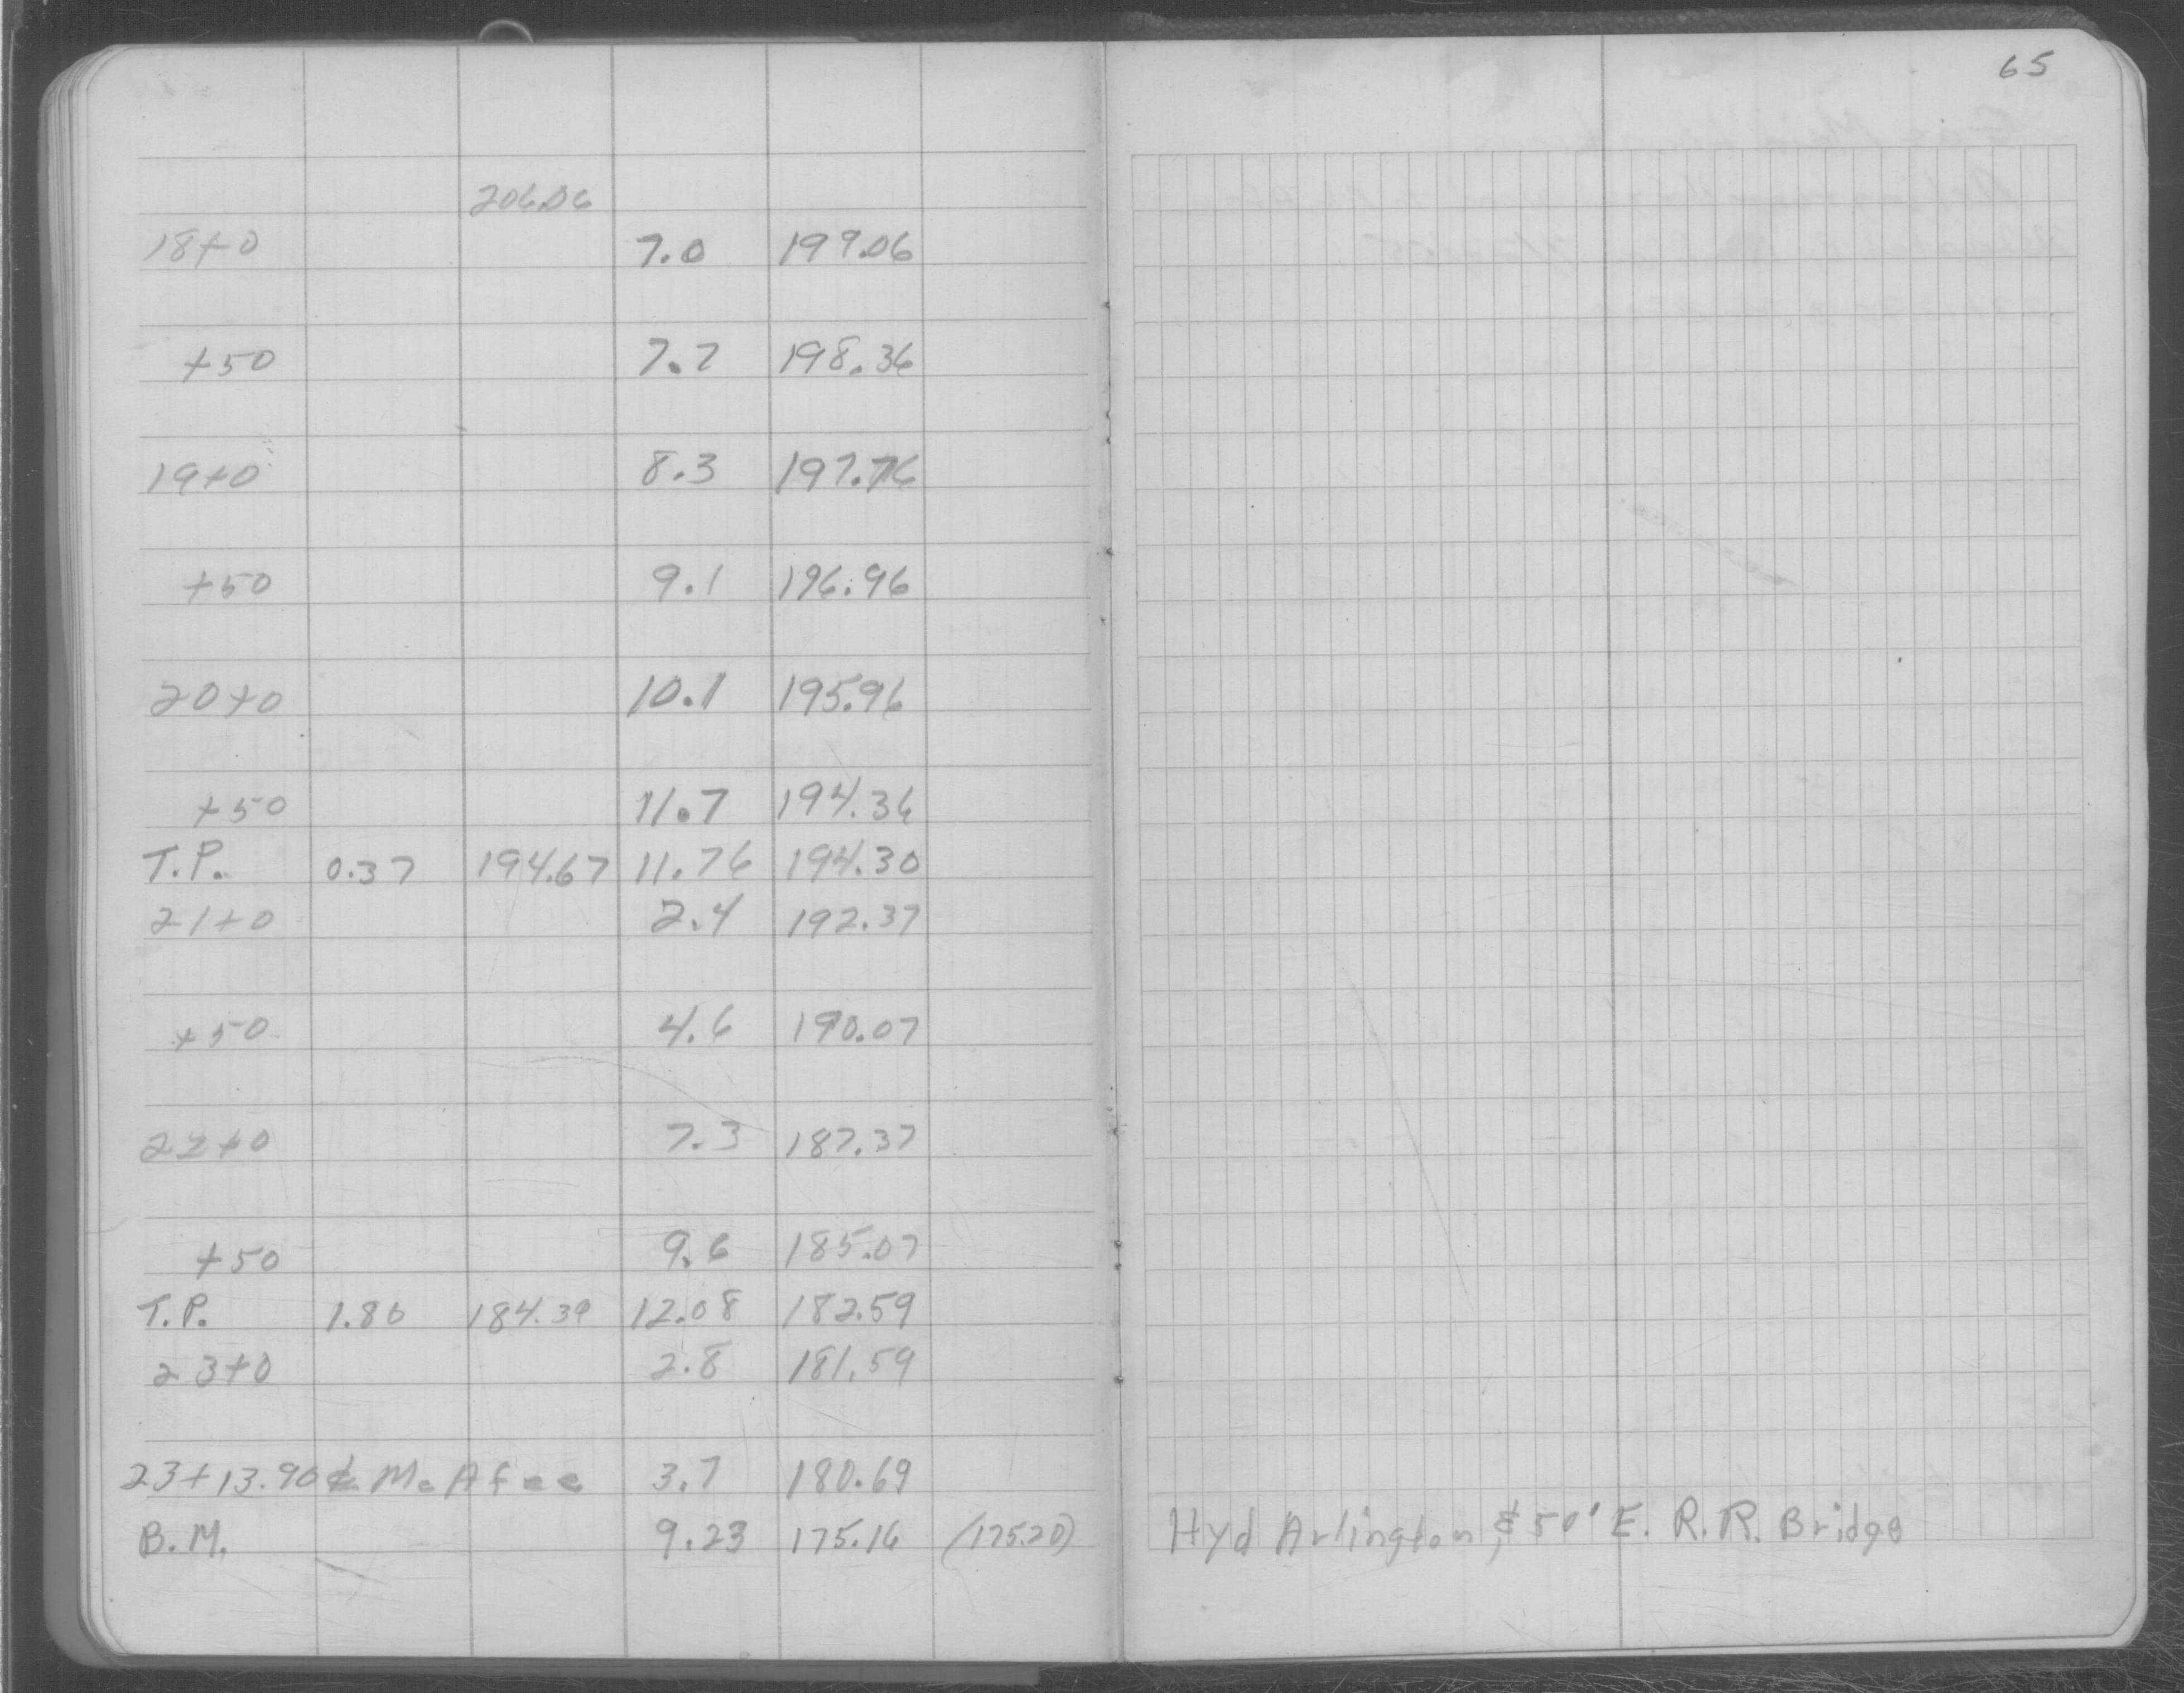 65
206.06
18+0 7.0 199.06
+50 7.7 198.36
19+0 8.3 197.76
+50 9.1 196.96
20+0 10.1 195.96
+50 11.7 194.36
T.P. 0.37 194.67 11.76 194.30
21+0 2.4 192.37
+50 4.6 190.07
22+0 7.3 187.37
+50 9.6 185.07
T.P. 1.80 184.39 12.08 182.59
23+0 2.8 181.59
23+13.90 ℄ McAfee 3.7 180.69
B.M. 9.23 175.16 (175.20) Hyd Arlington, ± 50' E. R.R. Bridge